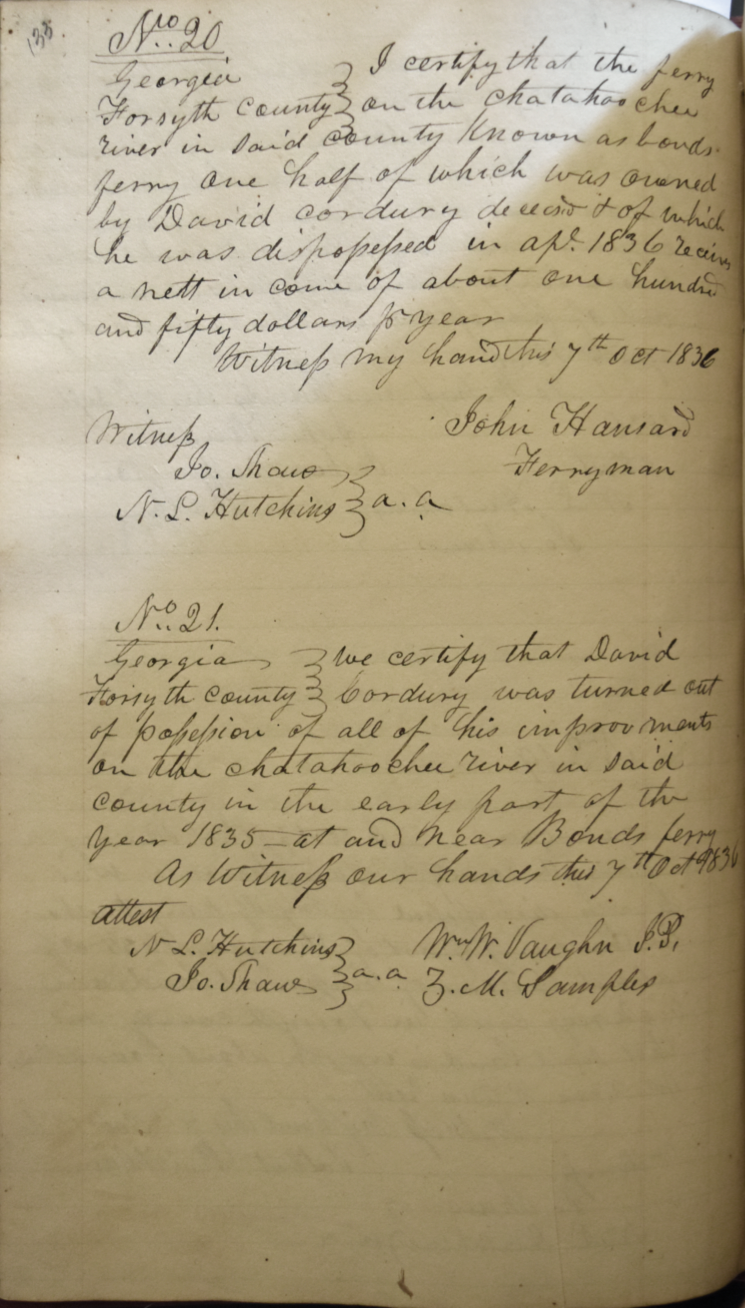 135.
No. 20
Georgia } I certify that the ferry
Forsyth county } on the chatahoochee
river in said county Known as bonds
ferry one half of which was owned
by David cordury decesd & of which
he was dispossessed in apl. 1836 receives
a nett in come of about one hundred
and fifty dollars pr year
Witness my hand this 7th Oct 1836
Witness John Hansard
Jo. Shaw } Ferryman
N. L. Hutchins } a. a
No. 21.
Georgia } We certify that David
Forsyth county } Cordury was turned out
of possession of all of his improvments
on the chatahoochee river in said
county in the early part of the
year 1835 - at and near Bonds ferry
As Witness our hands this 7th Oct 1836
attest
N L. Hutchins } Wm W. Vaughn J.P.
Jo. Shaw } a. a Z. M. Samples